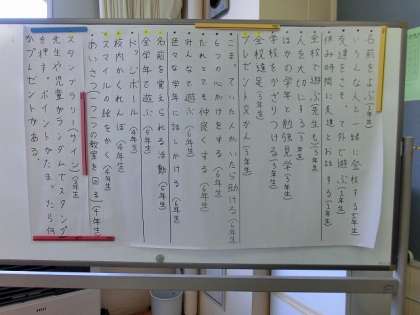 名前をよぶ(2年生)
いろんな人と一緒に登校する(5年生)
友達をさそって外で遊ぶ(5年生)
休み時間に友達とお話する(3年生)
全校で遊ぶ(先生も)(3年生)
人を大切にする(3年生)
ほかの学年と勉強見学(3年生)
学校をかざりつける(3年生)
全校遠足(5年生)
プレゼント交かん(5年生)
こまっていた人がいたら助ける(6年生)
6つの心がけをする(6年生)
だれとでも仲良くする(6年生)
みんなで遊ぶ(6年生)
色々な学年に話しかける(6年生)
名前を覚えられる活動(6年生)
全学年で遊ぶ(6年生)
ドッジボール(6年生)
校内かくれんぼ(6年生)
スマイルの絵をかく(6年生)
あいさつ(一つ一つの教室を回る)(4年生)
スタンプラリー(サイン)(2年生)
先生や児童がランダムでスタンプ
を押す。ポイントがたまったら何
かプレゼントがある。